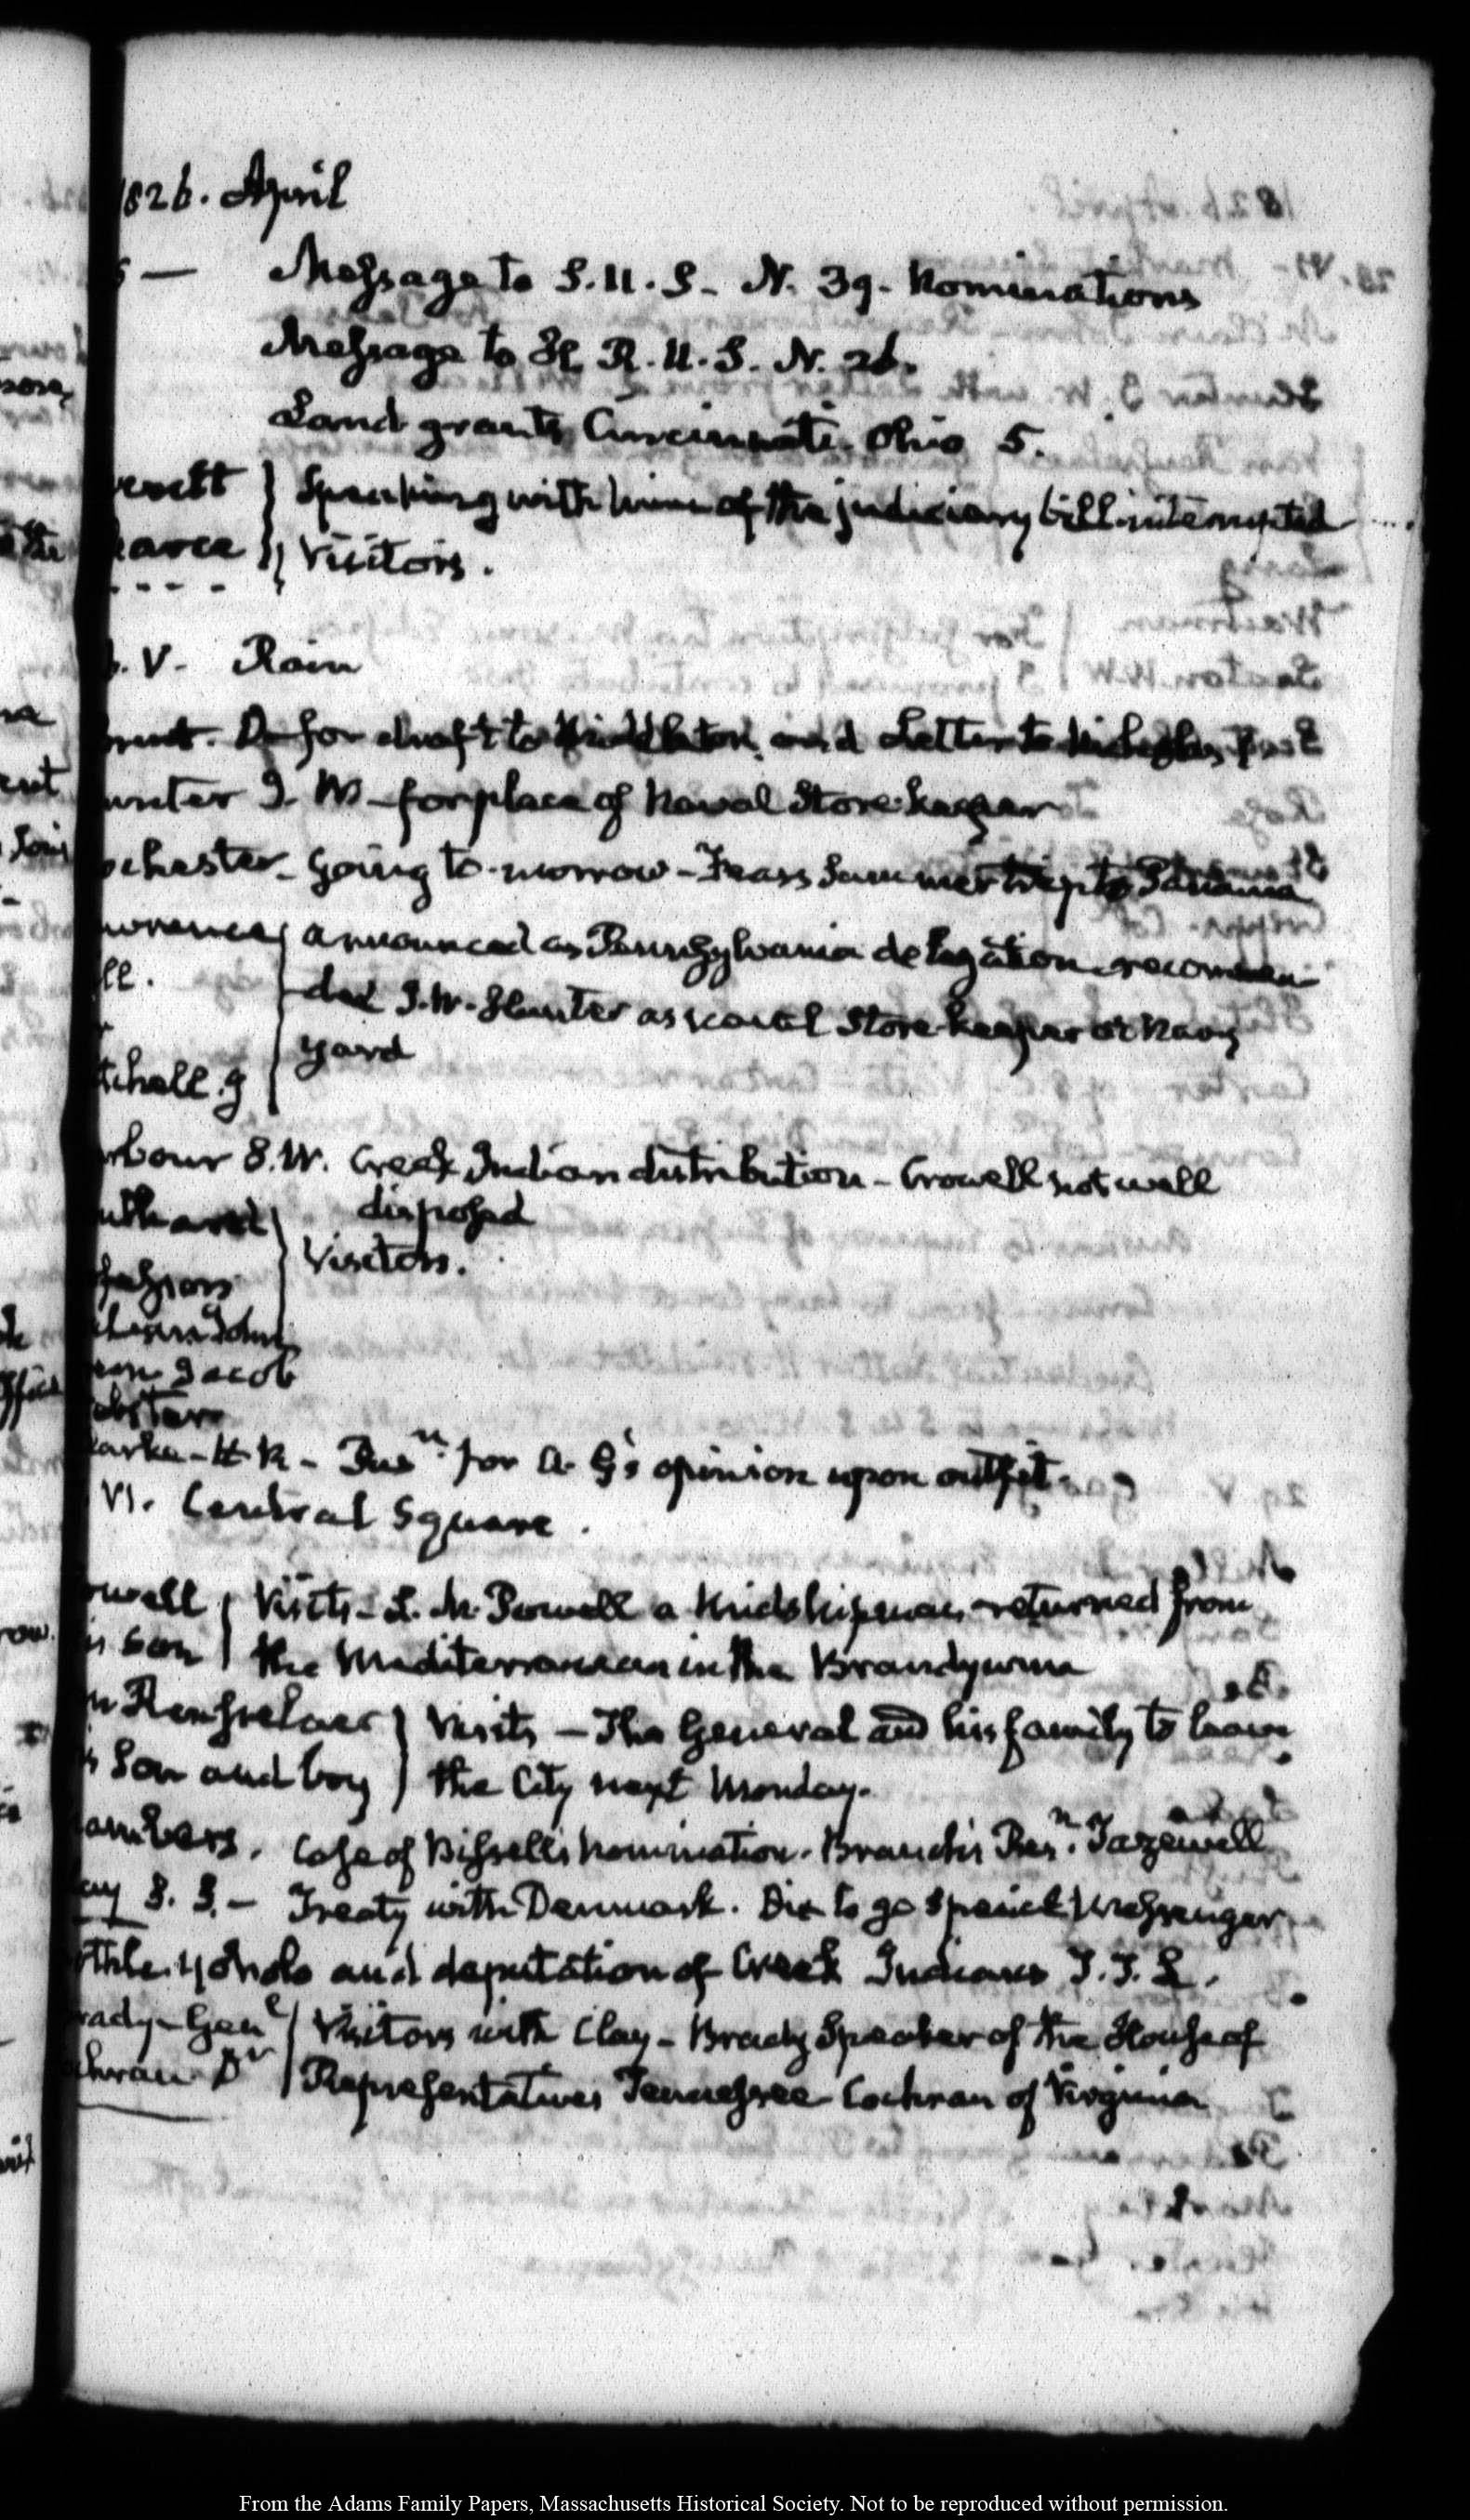 1826. April
5 — Message to S.U.S. N. 39. Nominations
Message to H. R. U. S. N. 26.
Land grants Cincinnati. Ohio 5.
verett } Speaking with him of the judiciary bill interrupted
earce } Visitors.
. V. Rain
for draft to Middleton, and Letter to
unter J. W. for place of Naval Store-keeper
ochester. Going to-morrow - Fears Summer trip to Panama
wrence } announced as Pennsylvania delegation recommen-
ll. ded J. W. Hunter as Naval Store keeper at Navy
yard
tchell. J
rbour S.W. Creek Indian distribution - Crowell not well
disposed
uthard } Visitors.
John
Jacob
ebster
larke - H. R - Pres.n for A. G's opinion upon outfit.
VI. Central Square.
owell } Visits - L. M. Powell a Midshipman returned from
is son } the Mediterranean in the Brandywine
n Rensselaer } Visits — The General and his family to leave
s Son and boy } the City next Monday.
ambers. Case of Bissell's nomination. Branch's Res.n Tazewell
ay S. S. — Treaty with Denmark. Dix to go Special Messenger
othle. yoholo and deputation of Creek Indians T. T. L.
rady - Gen.l } Visitors with Clay - Brady Speaker of the House of
chran Dr } Representatives Tennessee Cochran of Virginia
From the Adams Family Papers, Massachusetts Historical Society. Not to be reproduced without permission.